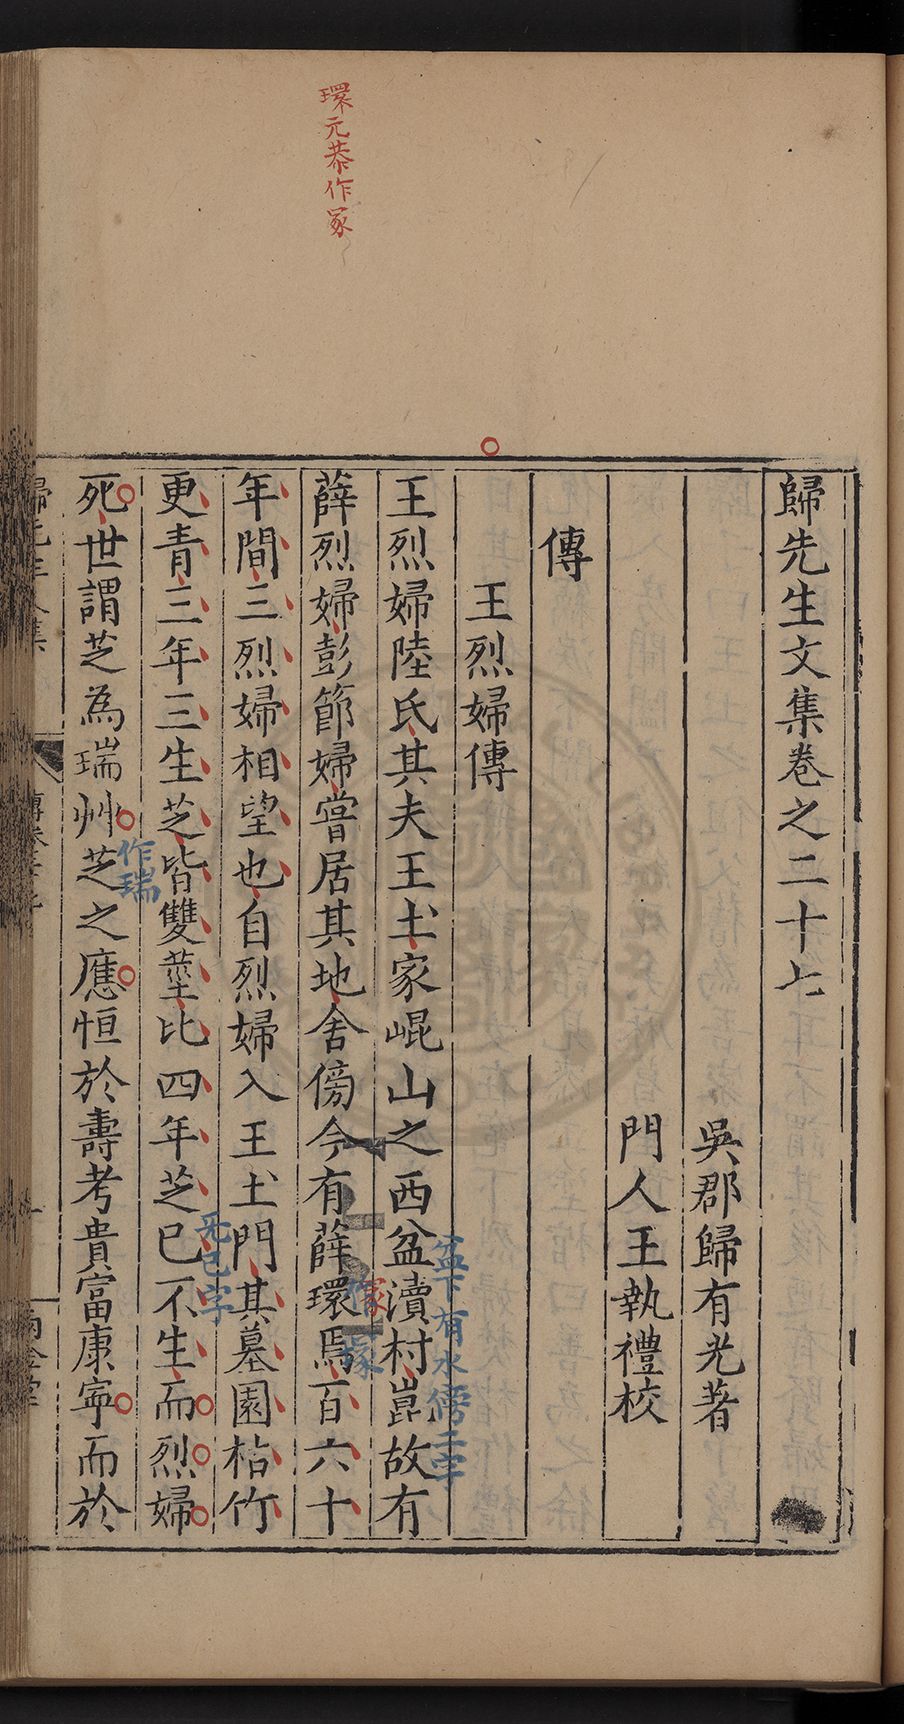 環元恭作冢
歸先生文集卷之二十七
吳郡歸有光著
門人王執禮校
傳
王烈婦傳
王烈婦陸氏其夫王土家崐山之西盆瀆村崑故有
盆下有水傍二字
薛烈婦彭節婦嘗居其地舍傍今有薛環焉百六十
冢
作塚
年間三烈婦相望也自烈婦入王土門其墓園枯竹
更青三年三生芝皆雙莖比四年芝已不生而烈婦
無已字
死世謂芝為瑞艸芝之應恒於壽考貴富康寧而於
作瑞